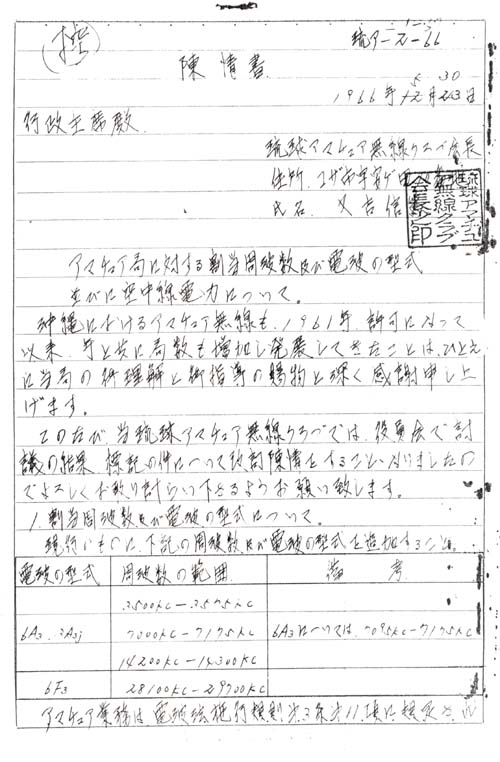 (控)
琉ア-ー-66
陳情書
5 30
1966年12月23日
行政主席殿
琉球アマチュア無線クラブ会長
住所 コザ市字
氏名 又吉信
琉球アマチュア無線クラブ会長之印
アマチュア局に対する割当周波数及び電波の型式
並びに空中線電力について。
沖縄におけるアマチュア無線も、1961年、許可になって
以来、年と共に局数も増加し発展してきたことは、ひとえ
に当局の御理解と御指導の賜物と深く感謝申し上
げます。
このたび、当琉球アマチュア無線クラブでは、役員会で討
議の結果、標記の件について改訂陳情をすることになりましたの
でよろしくお取り計らい下さるようお願い致します。
1. 割当周波数及び電波の型式について。
現行のものに、下記の周波数及び電波の型式を追加すること。
電波の型式 周波数の範囲 備考
3500KC-3575KC
6A3. 3A3j 7000KC-7175KC 6A3については、7095KC-7175KC
14200KC-14300KC
6F3 28100KC-29700KC
アマチュア業務は、電波法施行規則第3条第11項に規定され